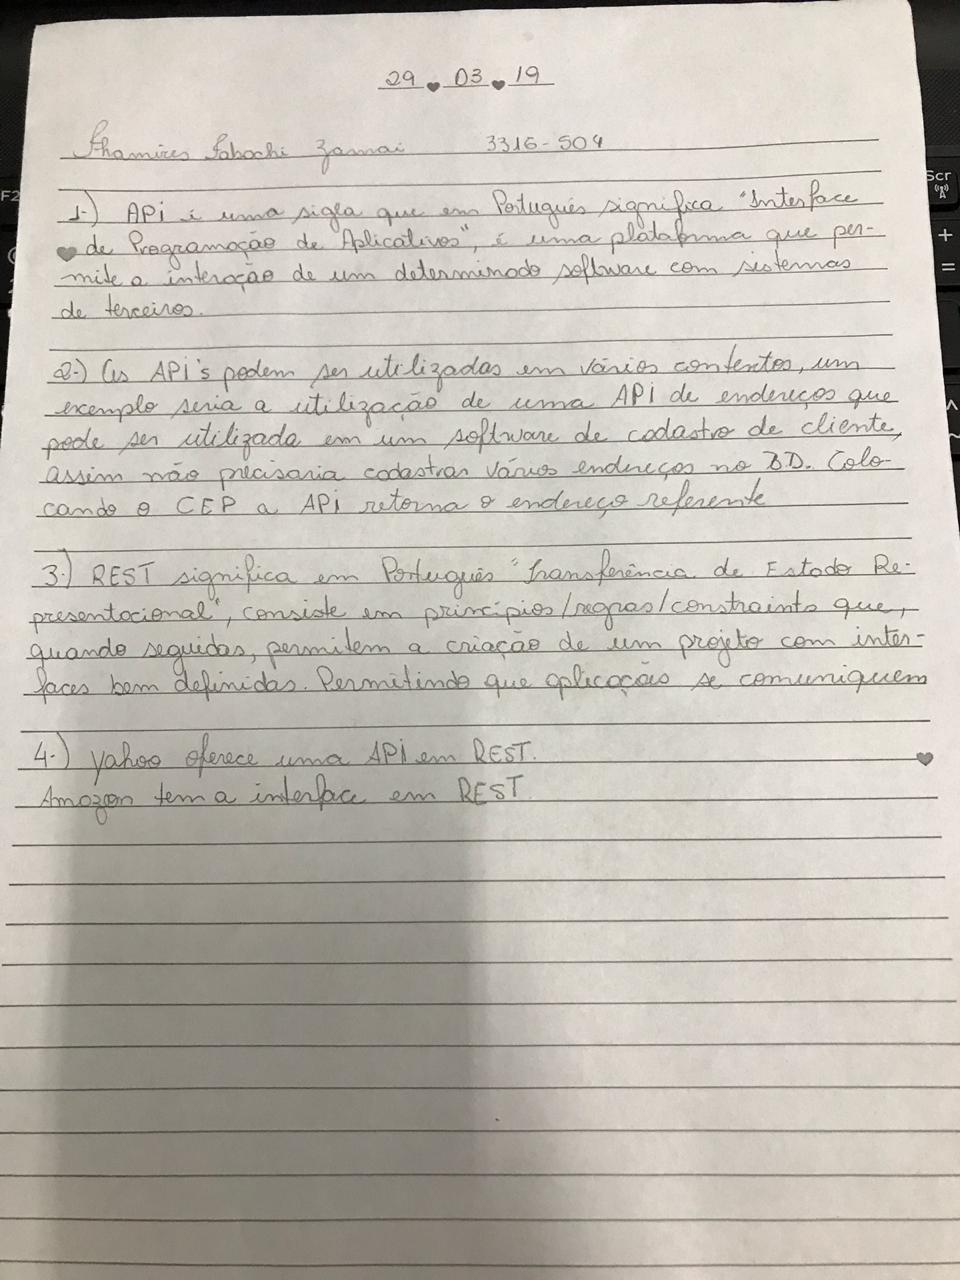 29 03 19
Thamires Zamai 3316-504
1-) APi é uma sigla que em Português significa "Interface
de Programação de Aplicativos", é uma plataforma que per-
mite a interação de um determinado software com sistemas
de terceiros.
2-) As APi's podem ser utilizadas em vários contextos, um
exemplo seria a utilização de uma APi de endereços que
pode ser utilizada em um software de cadastro de cliente,
assim não precisaria cadastrar vários endereços no BD. Colo-
cando o CEP a APi retorna o endereço referente
3-) REST significa em Português "Transferência de Estado Re-
presentacional", consiste em princípios/regras/constraints que,
quando seguidas, permitem a criação de um projeto com inter-
faces bem definidas. Permitindo que aplicações se comuniquem
4-) Yahoo oferece uma APi em REST.
Amazon tem a interface em REST.
F2
Scr
+
=